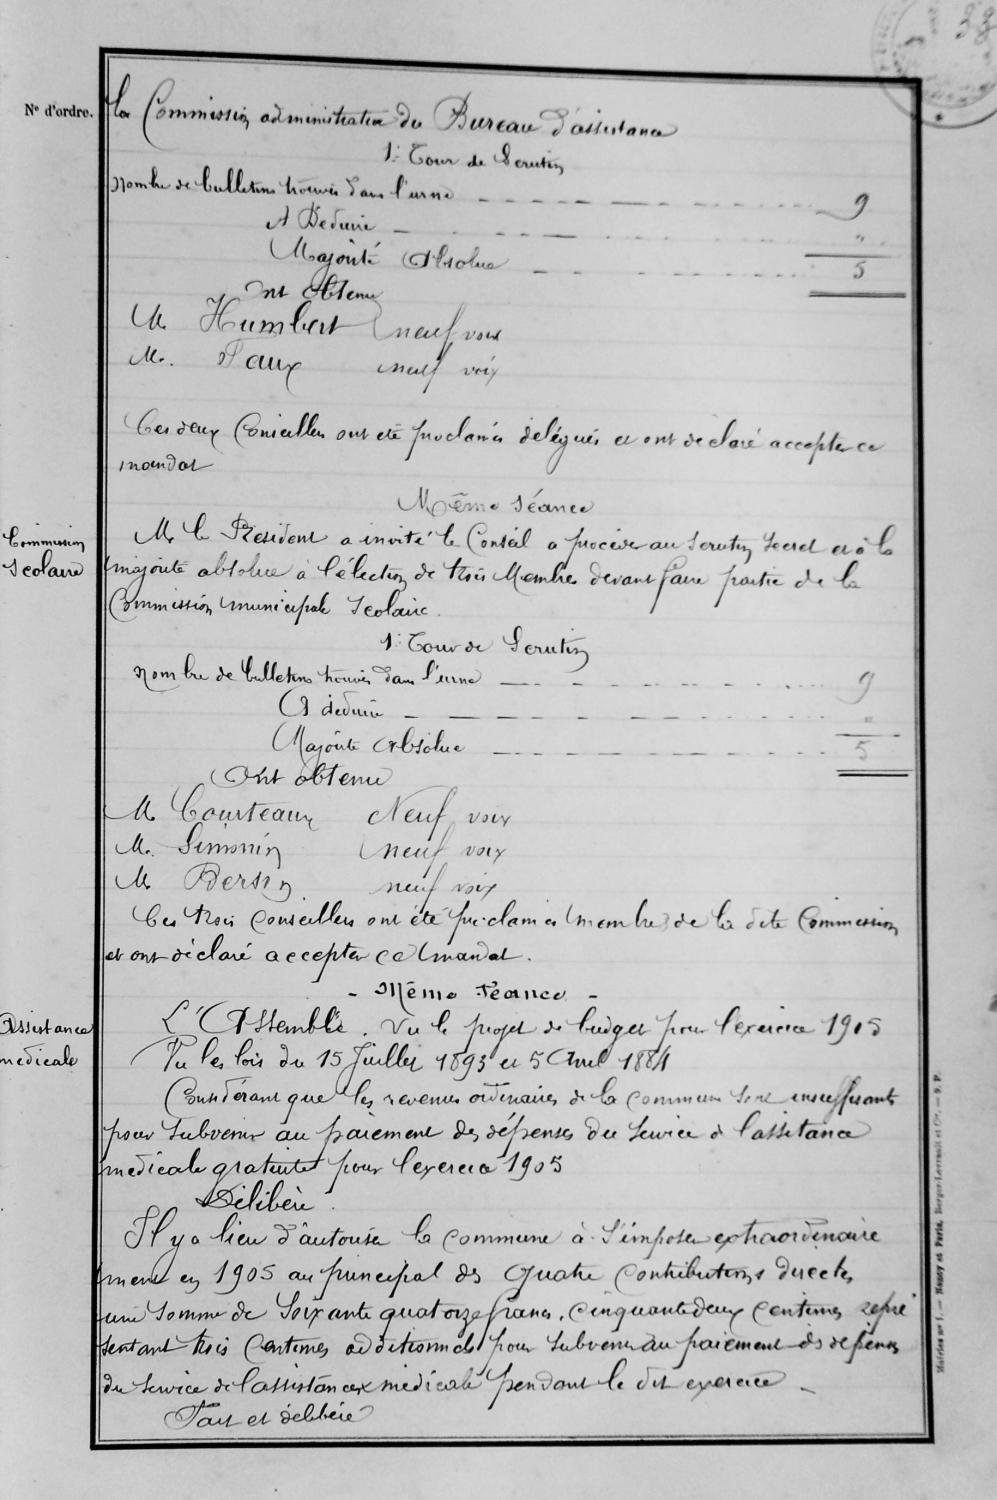 33
N° d'ordre.
la Commission administrative du Bureau d'assistance
1er Tour de Scrutin
Nombre de bulletins trouvés dans l'urne 9
A Déduire "
Majorité Absolue 5
Ont Obtenu
M. Humbert neuf voix
M. Paux neuf voix
Ces deux Conseillers ont été proclamés délégués et ont déclaré accepter ce
mandat
Même Séance
Commission
Scolaire
M. le Président a invité le Conseil a procéder au Scrutin Secret et à la
majorité absolue à l'élection de trois Membres devant faire partie de la
Commission municipale Scolaire.
1er Tour de Scrutin
Nombre de bulletins trouvés dans l'urne 9
A déduire "
Majorité Absolue 5
Ont obtenu
M. Courteaux Neuf voix
M. Simonin neuf voix
M. Bersin neuf voix
Ces trois Conseillers ont été proclamés membres de la dite Commission
et ont déclaré accepter ce mandat.
- Même Séance -
Assistance
médicale
L'Assemblée. Vu le projet de budget pour l'exercice 1905
Vu les lois du 15 Juillet 1893 et 5 Avril 1884
Considérant que les revenus ordinaires de la commune sont insuffisants
pour subvenir au paiement des dépenses du service d l'assistance
médicale gratuite pour l'exercice 1905
Délibère.
Il y a lieu d'autoriser la commune à s'imposer extraordinaire
ment en 1905 au principal des quatre contributions directes
une somme de Soixante quatorze francs. cinquante deux centimes repré
sentant trois Centimes additionnels pour subvenir au paiement des dépenses
du service de l'assistance médicale pendant le dit exercice
Fait et délibéré
Mairies n° 1. — Nancy et Paris, Berger-Levrault et Cie. —